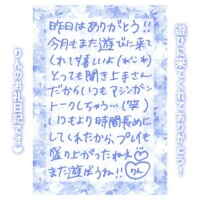 遊びに来てくれてありがとう!
昨日はありがとう!!
今月もまた遊びに来て
くれて嬉しいよ(ﾉ´∀`)
とっても聞き上手さん
だからいつもマシンガン
トークしちゃう…(笑)
いつもより時間長めに
してくれたから、プレイも
盛り上がったねぇ♡
また遊ぼうね!! りん
りんのお礼日記です♥